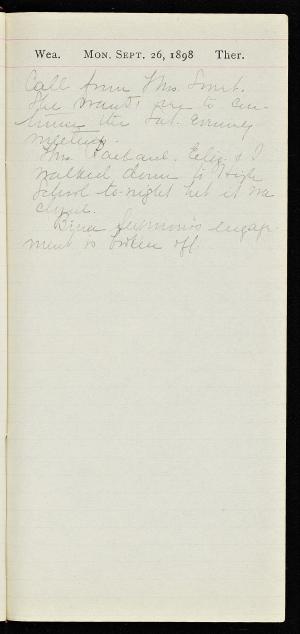 Wea. Mon. Sept. 26, 1898 Ther.
Call from Mrs.
She wants me to con-
tinue the Sat. Evening
meetings.
Mrs. & I
walked down to High
School to-night but it was
closed.
engage-
ment is broken off.